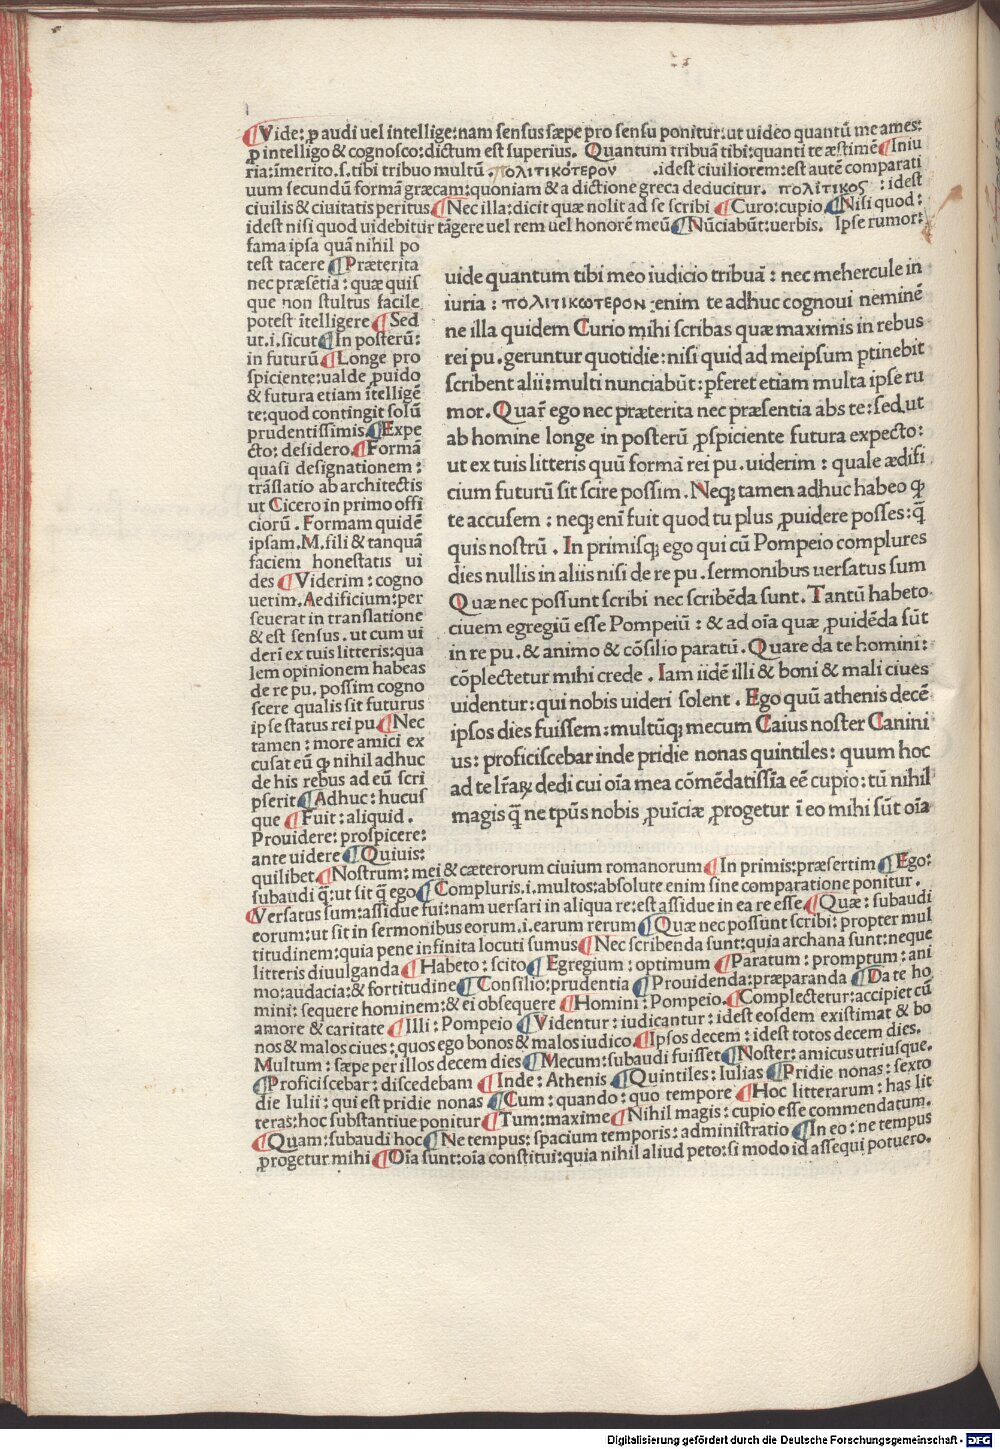 ¶Vide: ꝓ audi uel intellige:nam sensus sæpe pro sensu ponitur:ut uideo quantũ me ames:
ꝓ intelligo & cognosco:dictum est superius. Quantum tribuã tibi:quanti te æstimẽ¶Iniu
ria:ĩmerito.ſ.tibi tribuo multũ .πολιτικότερον .idest ciuiliorem:est autẽ comparati
uum secundũ formã græcam:quoniam & a dictione greca deducitur. πολίτικος : idest
ciuilis & ciuitatis peritus¶Nec illa:dicit quæ nolit ad se scribi ¶Curo:cupio.¶Nisi quod:
idest nisi quod uidebitur tãgere uel rem uel honorẽ meũ¶Nũciabũt:uerbis. Ipse rumor:
fama ipsa quã nihil po
test tacere ¶Præterita
nec præsẽtia: quæ quis
que non stultus facile
potest ĩtelligere ¶Sed
ut.i.sicut¶In posterũ:
in futurũ¶Longe pro
spiciente:ualde ꝓuido
& futura etiam ĩtelligẽ
te:quod contingit solũ
prudentissimis.¶Expe
cto: desidero.¶Formã
quasi designationem :
trãslatio ab architectis
ut Cicero in primo offi
ciorũ . Formam quidẽ
ipsam.M.fili & tanquã
faciem honestatis ui
des ¶Viderim : cogno
uerim.Aedificium:per
seuerat in translatione
& est sensus . ut cum ui
derĩ ex tuis litteris:qua
lem opinionem habeas
de re pu. possim cogno
scere qualis sit futurus
ipse status rei pu.¶Nec
tamen : more amici ex
cusat eũ ꝙ nihil adhuc
de his rebus ad eũ scri
pserit¶Adhuc: hucus
que ¶Fuit: aliquid .
Prouidere: prospicere:
ante uidere ¶Quiuis:
uide quantum tibi meo iudicio tribuã : nec mehercule in
iuria : πολιτικωτερον :enim te adhuc cognoui neminẽ
ne illa quidem Curio mihi scribas quæ maximis in rebus
rei pu.geruntur quotidie:nisi quid ad meipsum ꝑtinebit
scribent alii:multi nunciabũt:ꝑferet etiam multa ipse ru
mor.Quar̃ ego nec præterita nec præsentia abs te:sed ut
ab homine longe in posterũ ꝓspiciente futura expecto:
ut ex tuis litteris quũ formã rei pu.uiderim : quale ædifi
cium futurũ sit scire possim.Neqꝫ tamen adhuc habeo ꝙ
te accusem : neqꝫ enĩ fuit quod tu plus ꝓuidere posses:q̃
quis nostrũ . In primisqꝫ ego qui cũ Pompeio complures
dies nullis in aliis nisi de re pu.sermonibus uersatus sum
Quæ nec possunt scribi nec scribẽda sunt.Tantũ habeto
ciuem egregiũ esse Pompeiũ : & ad oĩa quæ ꝓuidẽda sũt
in re pu.& animo & cõsilio paratũ.Quare da te homini:
cõplectetur mihi crede . Iam iidẽ illi & boni & mali ciues
uidentur:qui nobis uideri solent . Ego quũ athenis decẽ
ipsos dies fuissem:multũqꝫ mecum Caius noster Canini
us: proficiscebar inde pridie nonas quintiles: quum hoc
ad te lr̃aꝝ dedi cui oĩa mea cõmẽdatissĩa eẽ cupio:tũ nihil
magis q̃ ne tp̃us nobis ꝓuĩciæ ꝓrogetur ĩ eo mihi sũt oĩa
quilibet.¶Nostrum: mei & cæterorum ciuium romanorum¶In primis:præsertim¶Ego:
subaudi q̃:ut sit q̃ ego¶Compluris.i.multos:absolute enim sine comparatione ponitur .
¶Versatus sum:assidue fui:nam uersari in aliqua re:est assidue in ea re esse¶Quæ: subaudi
eorum:ut sit in sermonibus eorum.i.earum rerum¶Quæ nec possunt scribi: propter mul
titudinem:quia pene infinita locuti sumus¶Nec scribenda sunt:quia archana sunt:neque
litteris diuulganda¶Habeto: scito¶Egregium : optimum ¶Paratum : promptum : ani
mo:audacia:& fortitudine¶Consilio:prudentia ¶Prouidenda:præparanda ¶Da te ho
mini: sequere hominem:& ei obsequere ¶Homini : Pompeio.¶Complectetur:accipiet cũ
amore & caritate ¶Illi: Pompeio ¶Videntur: iudicantur : idest eosdem existimat & bo
nos & malos ciues: quos ego bonos & malos iudico.¶Ipsos decem : idest totos decem dies.
Multum : sæpe per illos decem dies¶Mecum:subaudi fuisset¶Noster: amicus utriusque.
¶Proficiscebar: discedebam ¶Inde: Athenis ¶Quintiles: Iulias ¶Pridie nonas: sexto
die Iulii: qui est pridie nonas ¶Cum: quando: quo tempore ¶Hoc litterarum : has lit
teras:hoc substantiue ponitur¶Tum:maxime¶Nihil magis: cupio esse commendatum.
¶Quam:subaudi hoc¶Ne tempus: spacium temporis: administratio ¶In eo: ne tempus
ꝓrogetur mihi ¶Oĩa sunt:oĩa constitui:quia nihil aliud peto:si modo id assequi potuero.
Digitalisierung gefördert durch die Deutsche Forschungsgemeinschaft - DFG